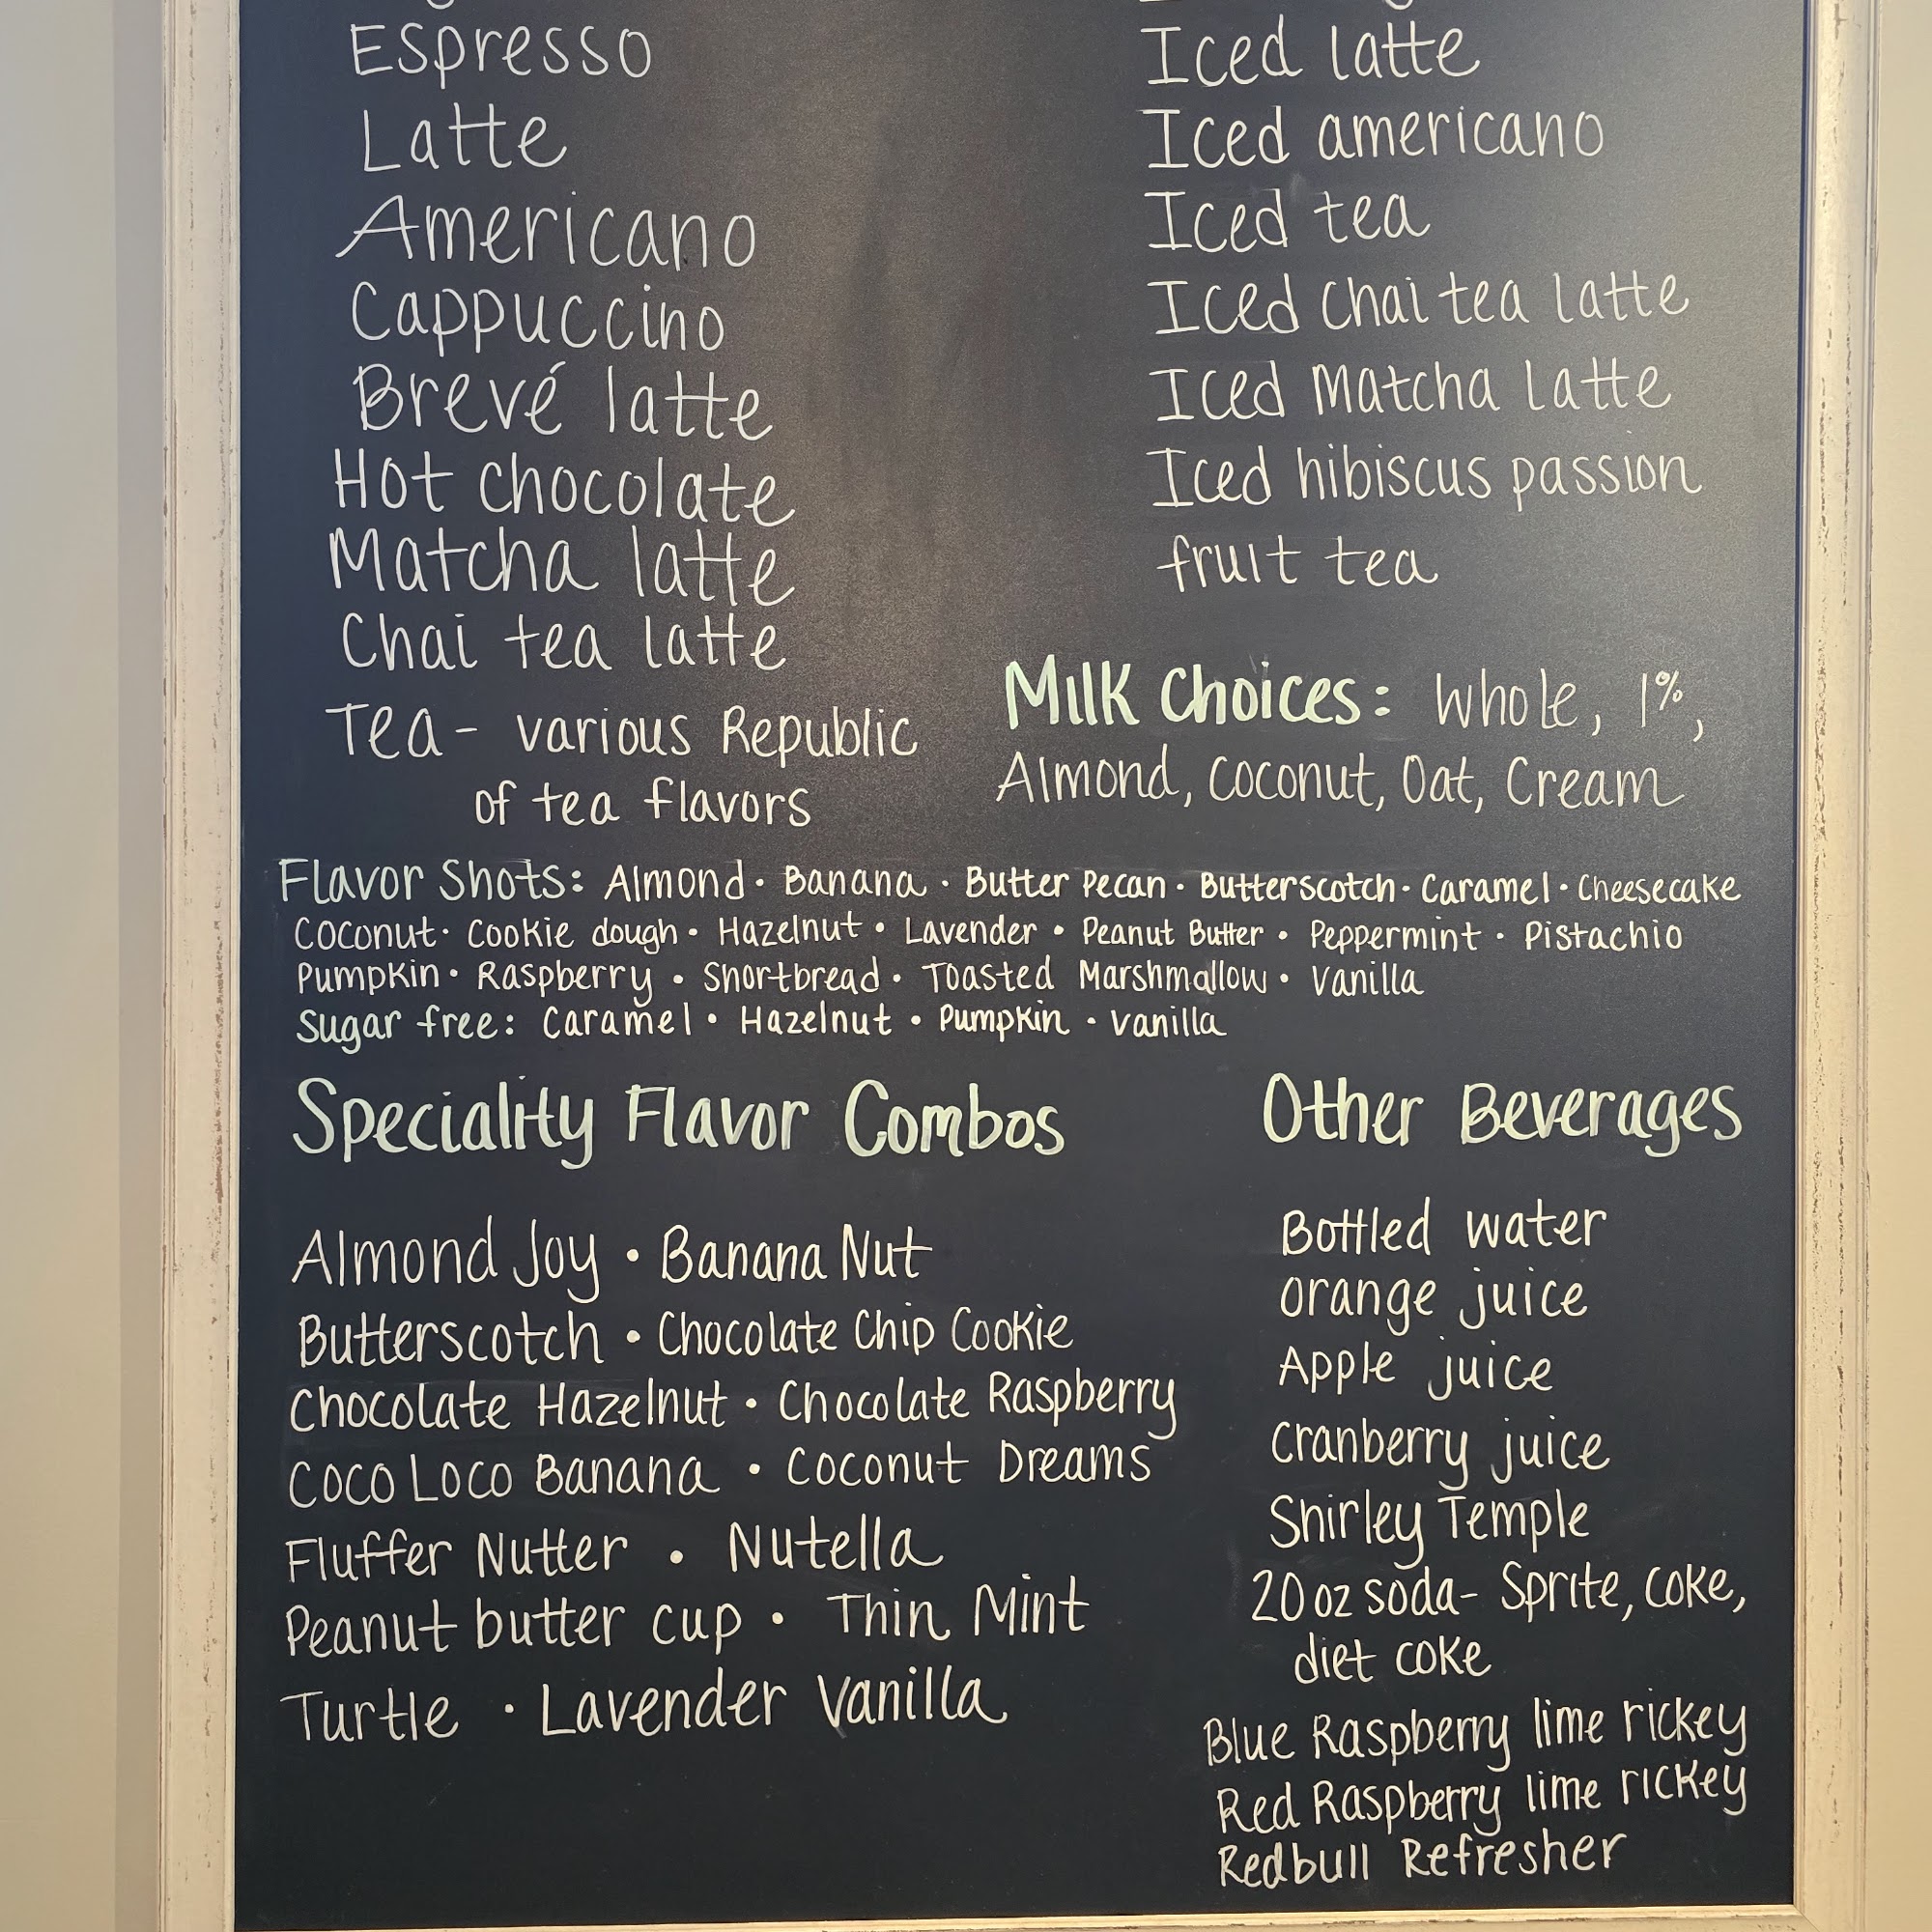 Espresso
Latte
Americano
Cappuccino
Brevé latte
Hot chocolate
Matcha latte
Chai tea latte
Tea - various Republic
of tea flavors
Iced latte
Iced americano
Iced tea
Iced chai tea latte
Iced Matcha Latte
Iced hibiscus passion
fruit tea
Milk Choices: Whole, 1%,
Almond, Coconut, Oat, Cream
Flavor Shots: Almond · Banana · Butter Pecan · Butterscotch · Caramel · Cheesecake
Coconut · Cookie dough · Hazelnut · Lavender · Peanut Butter · Peppermint · Pistachio
Pumpkin · Raspberry · Shortbread · Toasted Marshmallow · Vanilla
Sugar free: Caramel · Hazelnut · Pumpkin · vanilla
Speciality Flavor Combos
Almond Joy · Banana Nut
Butterscotch · Chocolate Chip Cookie
Chocolate Hazelnut · Chocolate Raspberry
Coco Loco Banana · Coconut Dreams
Fluffer Nutter · Nutella
Peanut butter cup · Thin Mint
Turtle · Lavender Vanilla
Other Beverages
Bottled water
orange juice
Apple juice
Cranberry juice
Shirley Temple
20 oz soda - Sprite, coke,
diet coke
Blue Raspberry lime rickey
Red Raspberry lime rickey
Redbull Refresher